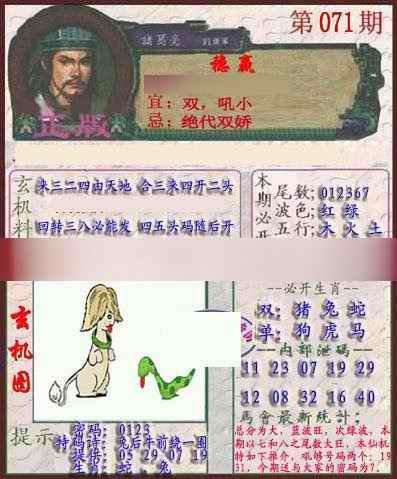 第071期
諸葛亮
劉備軍
稳赢
宜：双，吼小
忌：绝代双娇
正版
玄机料
来三二四由天地 合三来四开二头
回转三八必能发 四五头码随后开
本期必开
尾数：012367
波色：红 绿
五行：木 火 土
必开生肖
双：猪 兔 蛇
单：狗 虎 马
内部泄码
11 23 07 19 29
16 24 32 40 48
12 04 36 20 28
馬會最新統計：
总分为大，蓝波旺，次绿波，本
期以七和八之尾数大旺，本仙机
特如下推介，吼够号码两个：19
31，今期送与大家的密码为7．
玄机图
提示
密码：0123
特码诗：兔后牛前绕一圈
提供：05 29 07 19
生肖：蛇，兔